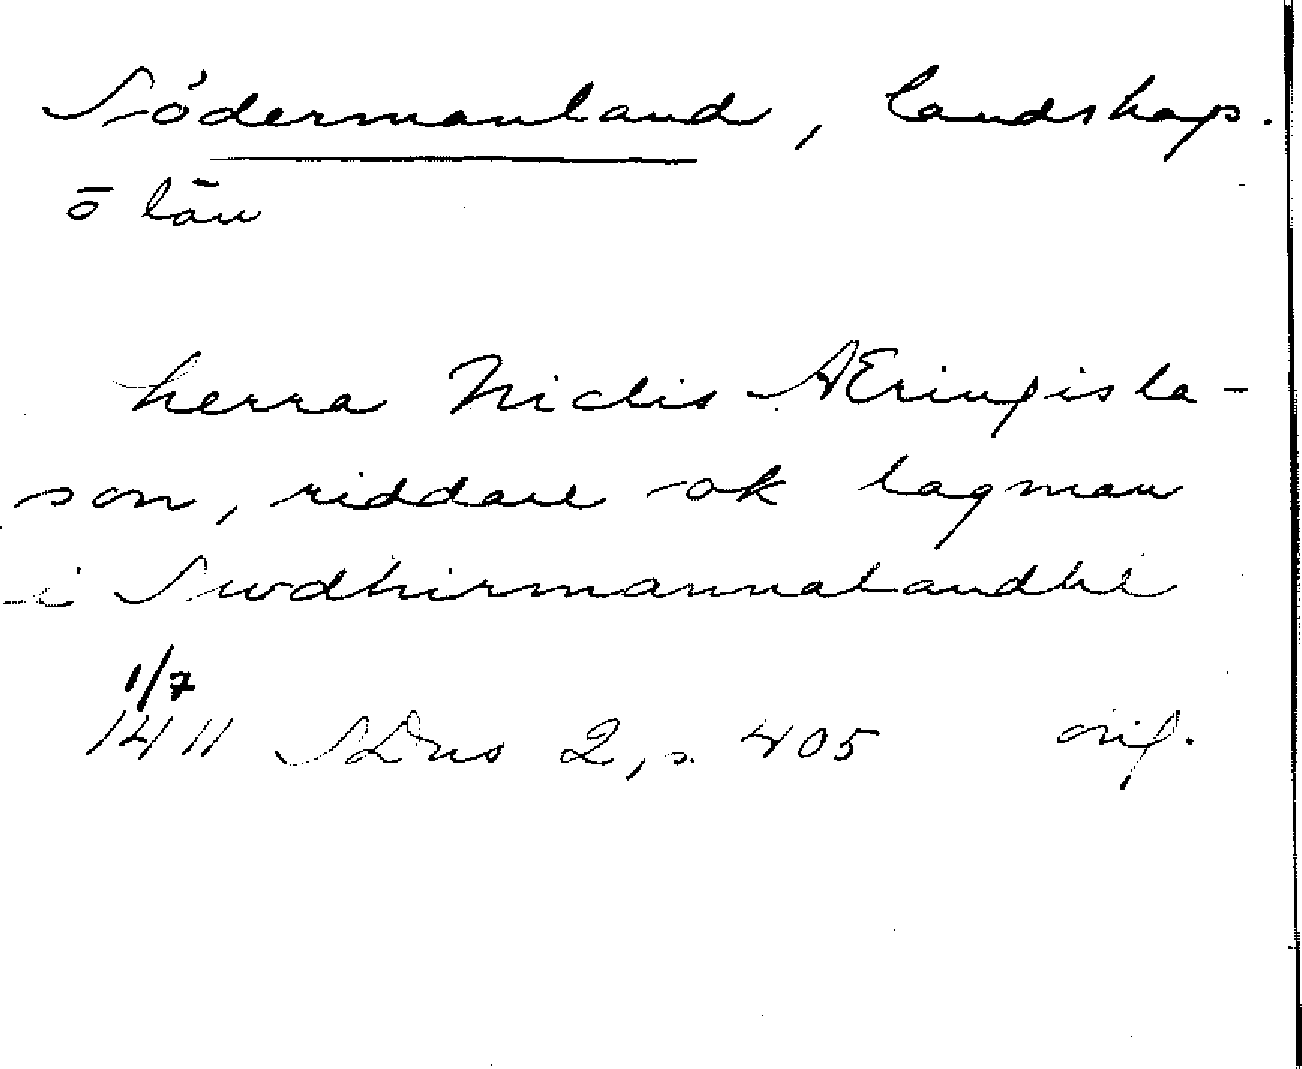 Södermanland, landskap.
o län
herra Niclis Æringisla-
son, riddare ok lagman
i Swdhirmannalandhe
1/7
1411 SDns 2, s. 405 orig.